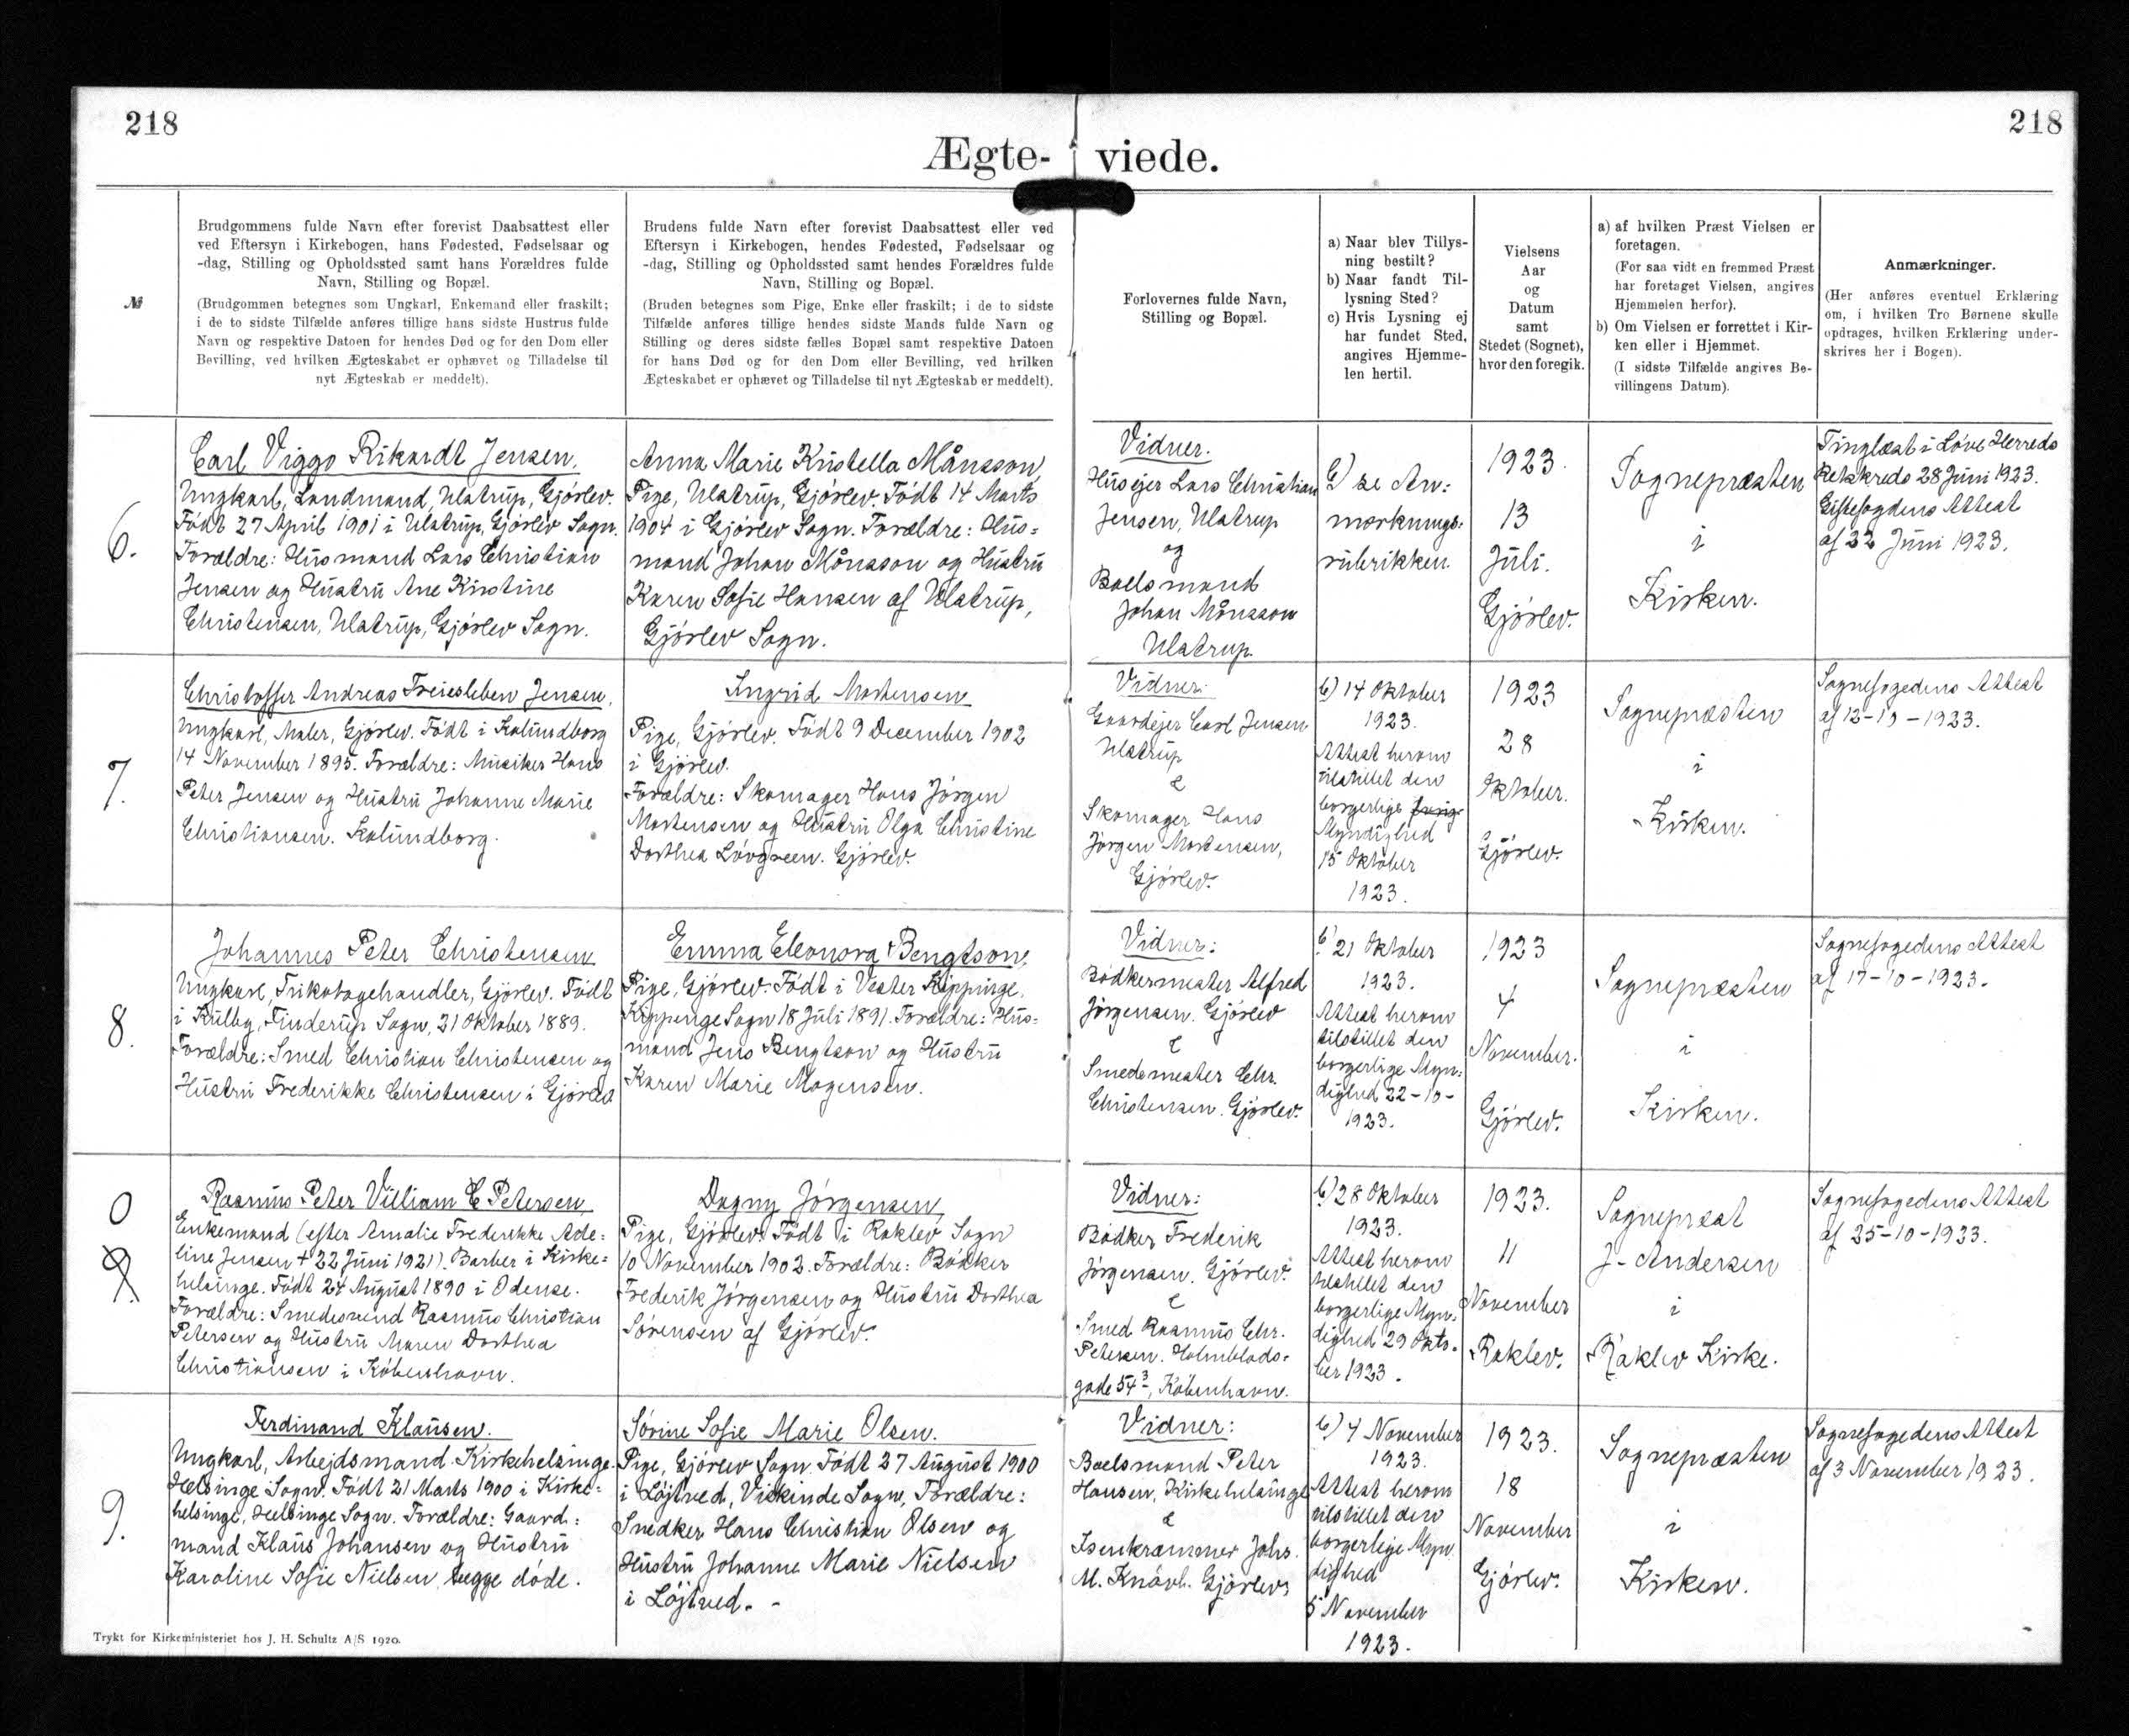 218
218
Ægte-
viede.
№
Brudgommens fulde Navn efter forevist Daabsattest eller
ved Eftersyn i Kirkebogen, hans Fødested, Fødselsaar og
-dag, Stilling og Opholdssted samt hans Forældres fulde
Navn, Stilling og Bopæl.
(Brudgommen betegnes som Ungkarl, Enkemand eller fraskilt;
i de to sidste Tilfælde anføres tillige hans sidste Hustrus fulde
Navn og respektive Datoen for hendes Død og for den Dom eller
Bevilling, ved hvilken Ægteskabet er ophævet og Tilladelse til
nyt Ægteskab er meddelt).
Brudens fulde Navn efter forevist Daabsattest eller ved
Eftersyn i Kirkebogen, hendes Fødested, Fødselsaar og
-dag, Stilling og Opholdssted samt hendes Forældres fulde
Navn, Stilling og Bopæl.
(Bruden betegnes som Pige, Enke eller fraskilt; i de to sidste
Tilfælde anføres tillige hendes sidste Mands fulde Navn og
Stilling og deres sidste fælles Bopæl samt respektive Datoen
for hans Død og for den Dom eller Bevilling, ved hvilken
Ægteskabet er ophævet og Tilladelse til nyt Ægteskab er meddelt).
Forlovernes fulde Navn,
Stilling og Bopæl.
a) Naar blev Tillys-
ning bestilt?
b) Naar fandt Til-
lysning Sted?
c) Hvis Lysning ej
har fundet Sted,
angives Hjemme-
len hertil.
Vielsens
Aar
og
Datum
samt
Stedet (Sognet),
hvor den foregik.
a) af hvilken Præst Vielsen er
foretagen.
(For saa vidt en fremmed Præst
har foretaget Vielsen, angives
Hjemmelen herfor).
b) Om Vielsen er forrettet i Kir-
ken eller i Hjemmet.
(I sidste Tilfælde angives Be-
villingens Datum).
Anmærkninger.
(Her anføres eventuel Erklæring
om, i hvilken Tro Børnene skulle
opdrages, hvilken Erklæring under-
skrives her i Bogen).
6.
Carl Viggo Rikardt Jensen.
Ungkarl, Landmand, Ulstrup, Gjörlev.
Födt 27 April 1901 i Ulstrup, Gjörlev Sogn.
Forældre: Husmand Lars Christian
Jensen og Hustru Ane Kirstine
Christensen, Ulstrup, Gjörlev Sogn.
Anna Marie Kristella Månsson,
Pige, Ulstrup, Gjörlev. Födt 14 Marts
1904 i Gjörlev Sogn. Forældre: Hus=
mand Johan Månsson og Hustru
Karen Sofie Hansen af Ulstrup,
Gjörlev Sogn.
Vidner.
Husejer Lars Christian
Jensen, Ulstrup
og
Boelsmand
Johan Månsson
Ulstrup.
c) se An=
mærknings=
rubrikken.
1923.
13
Juli.
Gjörlev.
Sognepræsten
i
Kirken.
Tinglæst i Löve Herreds
Retskreds 28 Juni 1923.
Giftefogdens Attest
af 22 Juni 1923.
7.
Christoffer Andreas Freiesleben Jensen.
Ungkarl, Maler, Gjörlev. Födt i Kalundborg
14 November 1895. Forældre: Musiker Hans
Peter Jensen og Hustru Johanne Marie
Christiansen. Kalundborg.
Ingrid Mortensen
Pige, Gjörlev. Födt 9 December 1902
i Gjörlev.
Forældre: Skomager Hans Jörgen
Mortensen og Hustru Olga Christine
Dorthea Lövgreen. Gjörlev.
Vidner:
Gaardejer Carl Jensen
Ulstrup
&
Skomager Hans
Jörgen Mortensen,
Gjörlev.
b) 14 Oktober
1923.
Attest herom
tilstillet den
borgerlige
Myndighed
15 Oktober
1923.
1923
28
Oktober.
Gjörlev.
Sognepræsten
i
Kirken.
Sognefogedens Attest
af 12-10-1923.
8.
Johannes Peter Christensen
Ungkarl, Trikotagehandler, Gjörlev. Födt
i Kulby, Finderup Sogn, 21 Oktober 1889.
Forældre: Smed Christian Christensen og
Hustru Frederikke Christensen i Gjörlev
Emma Eleonora Bengtson,
Pige, Gjörlev. Födt i Vester Kippinge,
Kippinge Sogn 18 Juli 1891. Forældre: Hus=
mand Jens Bengtson og Hustru
Karen Marie Mogensen.
Vidner:
Bödkermester Alfred
Jörgensen. Gjörlev
&
Smedemester Chr.
Christensen. Gjörlev.
b) 21 Oktober
1923.
Attest herom
tilstillet den
borgerlige Myn=
dighed 22-10-
1923.
1923
4
November.
Gjörlev.
Sognepræsten
i
Kirken.
Sognefogedens Attest
af 17-10-1923.
0
9.
Rasmus Peter Villiam E Petersen,
Enkemand (efter Amalie Frederikke Ade=
line Jensen + 22 Juni 1921). Barber i Kirke=
helsinge. Födt 24 August 1890 i Odense.
Forældre: Smedesvend Rasmus Christian
Petersen og Hustru Maren Dorthea
Christiansen i København.
Dagny Jörgensen,
Pige, Gjörlev. Födt i Raklev Sogn
10 November 1902. Forældre: Bödker
Frederik Jörgensen og Hustru Dorthea
Sörensen af Gjörlev.
Vidner:
Bödker Frederik
Jörgensen. Gjörlev.
&
Smed Rasmus Chr.
Petersen. Holmblads=
gade 54³, København.
b) 28 Oktober
1923.
Attest herom
tilstillet den
borgerlige Myn=
dighed 29 Okto=
ber 1923.
1923.
11
November
Raklev.
Sognepræst
J. Andersen
i
Raklev Kirke.
Sognefogedens Attest
af 25-10-1923.
9.
Ferdinand Klausen.
Ungkarl, Arbejdsmand. Kirkehelsinge.
Helsinge Sogn. Födt 21 Marts 1900 i Kirke=
helsinge, Helsinge Sogn. Forældre: Gaard=
mand Klaus Johansen og Hustru
Karoline Sofie Nielsen, begge döde.
Sörine Sofie Marie Olsen.
Pige, Gjörlev Sogn. Födt 27 August 1900
i Löjtved, Viskinde Sogn, Forældre:
Snedker Hans Christian Olsen og
Hustru Johanne Marie Nielsen
i Löjtved.
Vidner:
Boelsmand Peter
Hansen, Kirkehelsinge
&
Isenkræmmer Johs.
M. Gjörlev
b) 4 November
1923.
Attest herom
tilstillet den
borgerlige Myn
dighed
5 November
1923.
1923.
18
November
Gjörlev.
Sognepræsten
i
Kirken.
Sognefogedens Attest
af 3 November 1923.
Trykt for Kirkeministeriet hos J. H. Schultz A/S 1920.